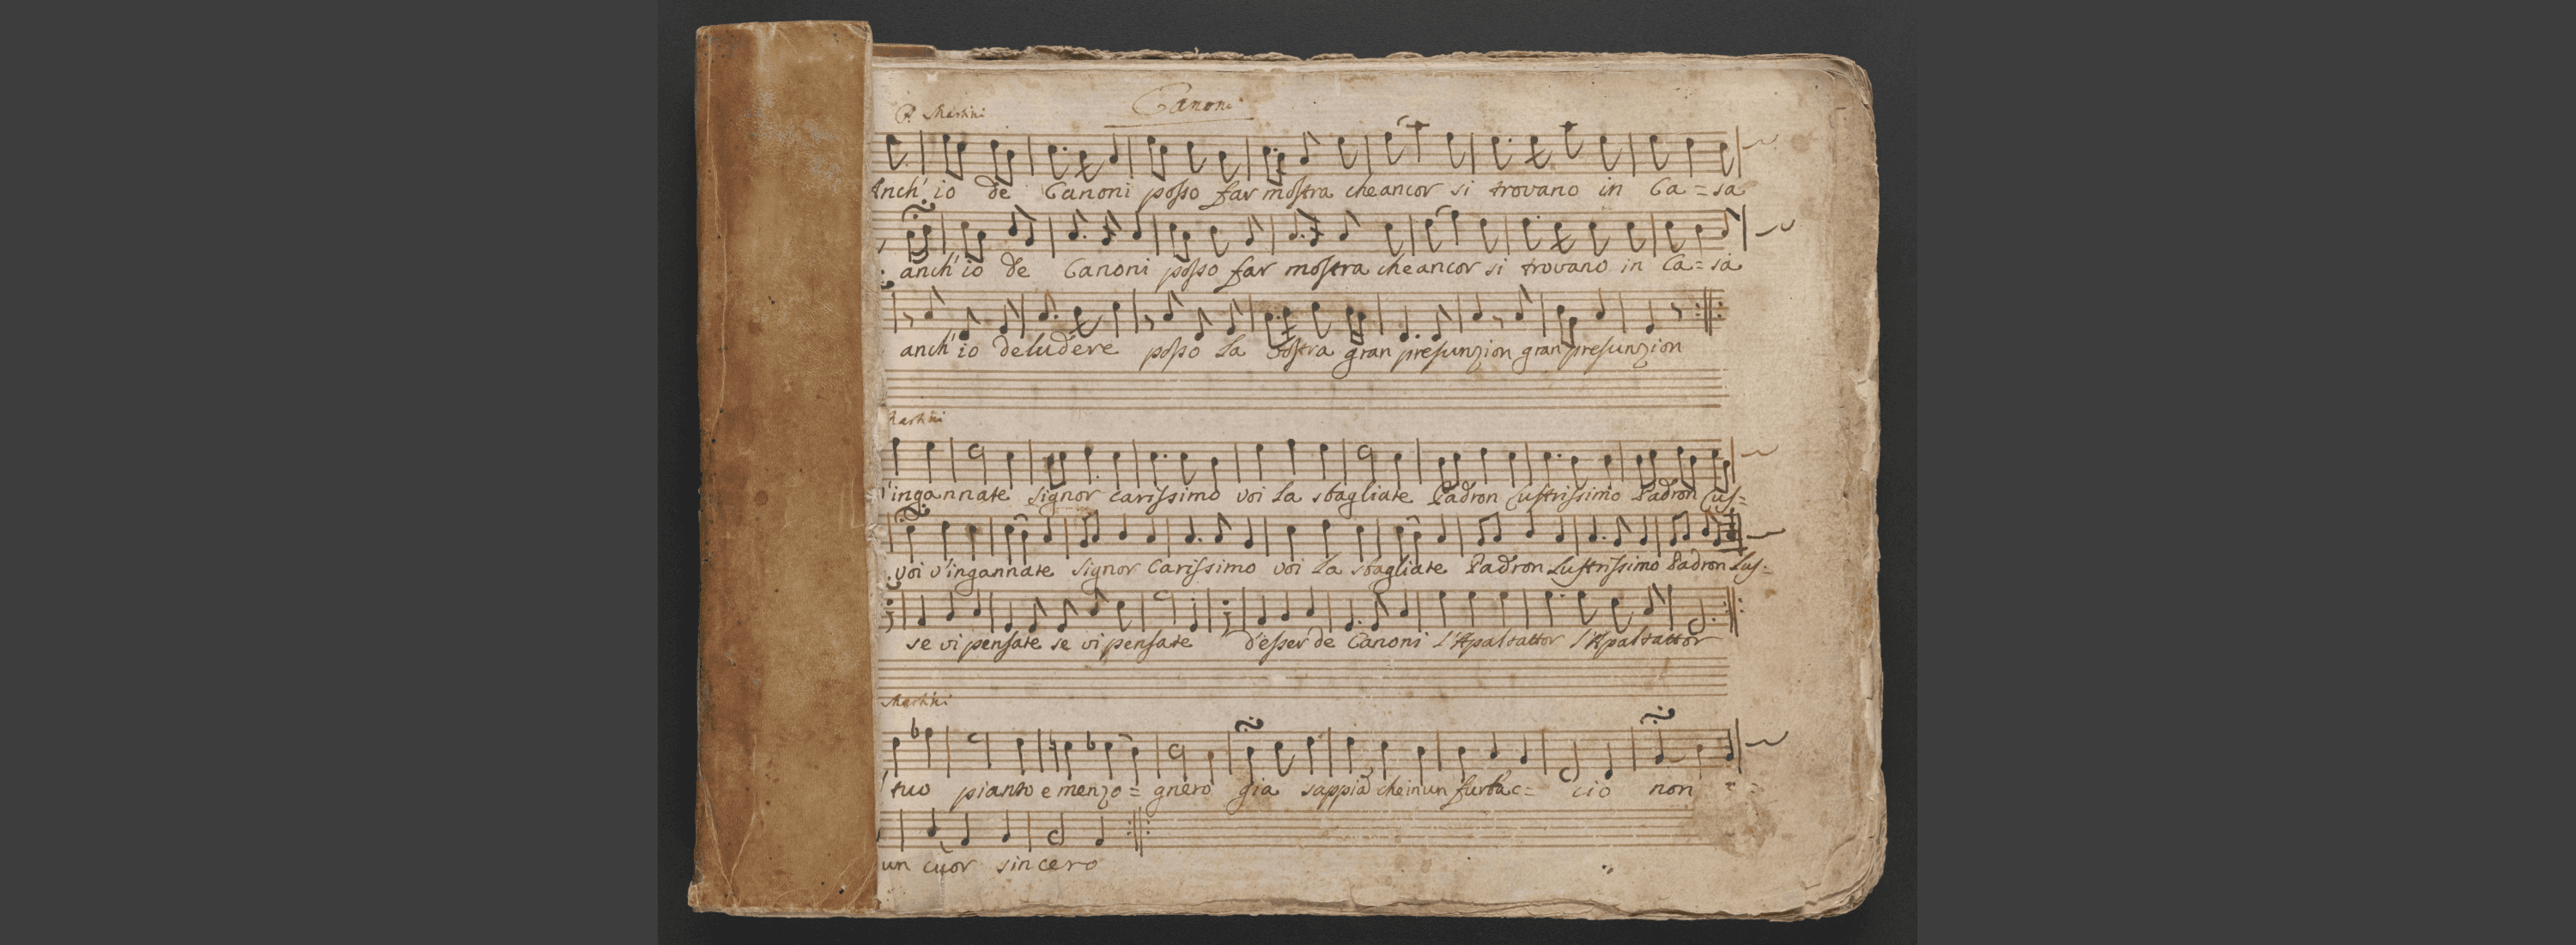 Canoni
P. Martini
Anch' io de Canoni poſso far moſtra che ancor si trovano in Ca = sa
anch' io de Canoni poſso far moſtra che ancor si trovano in Ca = sa
anch' io deludere poſso la voſtra gran preſunzion gran preſunzion
Martini
v'ingannate signor cariſsimo voi la sbagliate Padron Luſtriſsimo Padron Luſ=
voi v'ingannate signor Cariſsimo voi la sbagliate Padron Luſtriſsimo Padron Luſ=
se vi penſate se vi penſate d'eſser de Canoni l'Apaltattor l'Apaltattor
Martini
tuo pianto e menzo = gnero gia che in un furbac = cio non
un cuor sincero